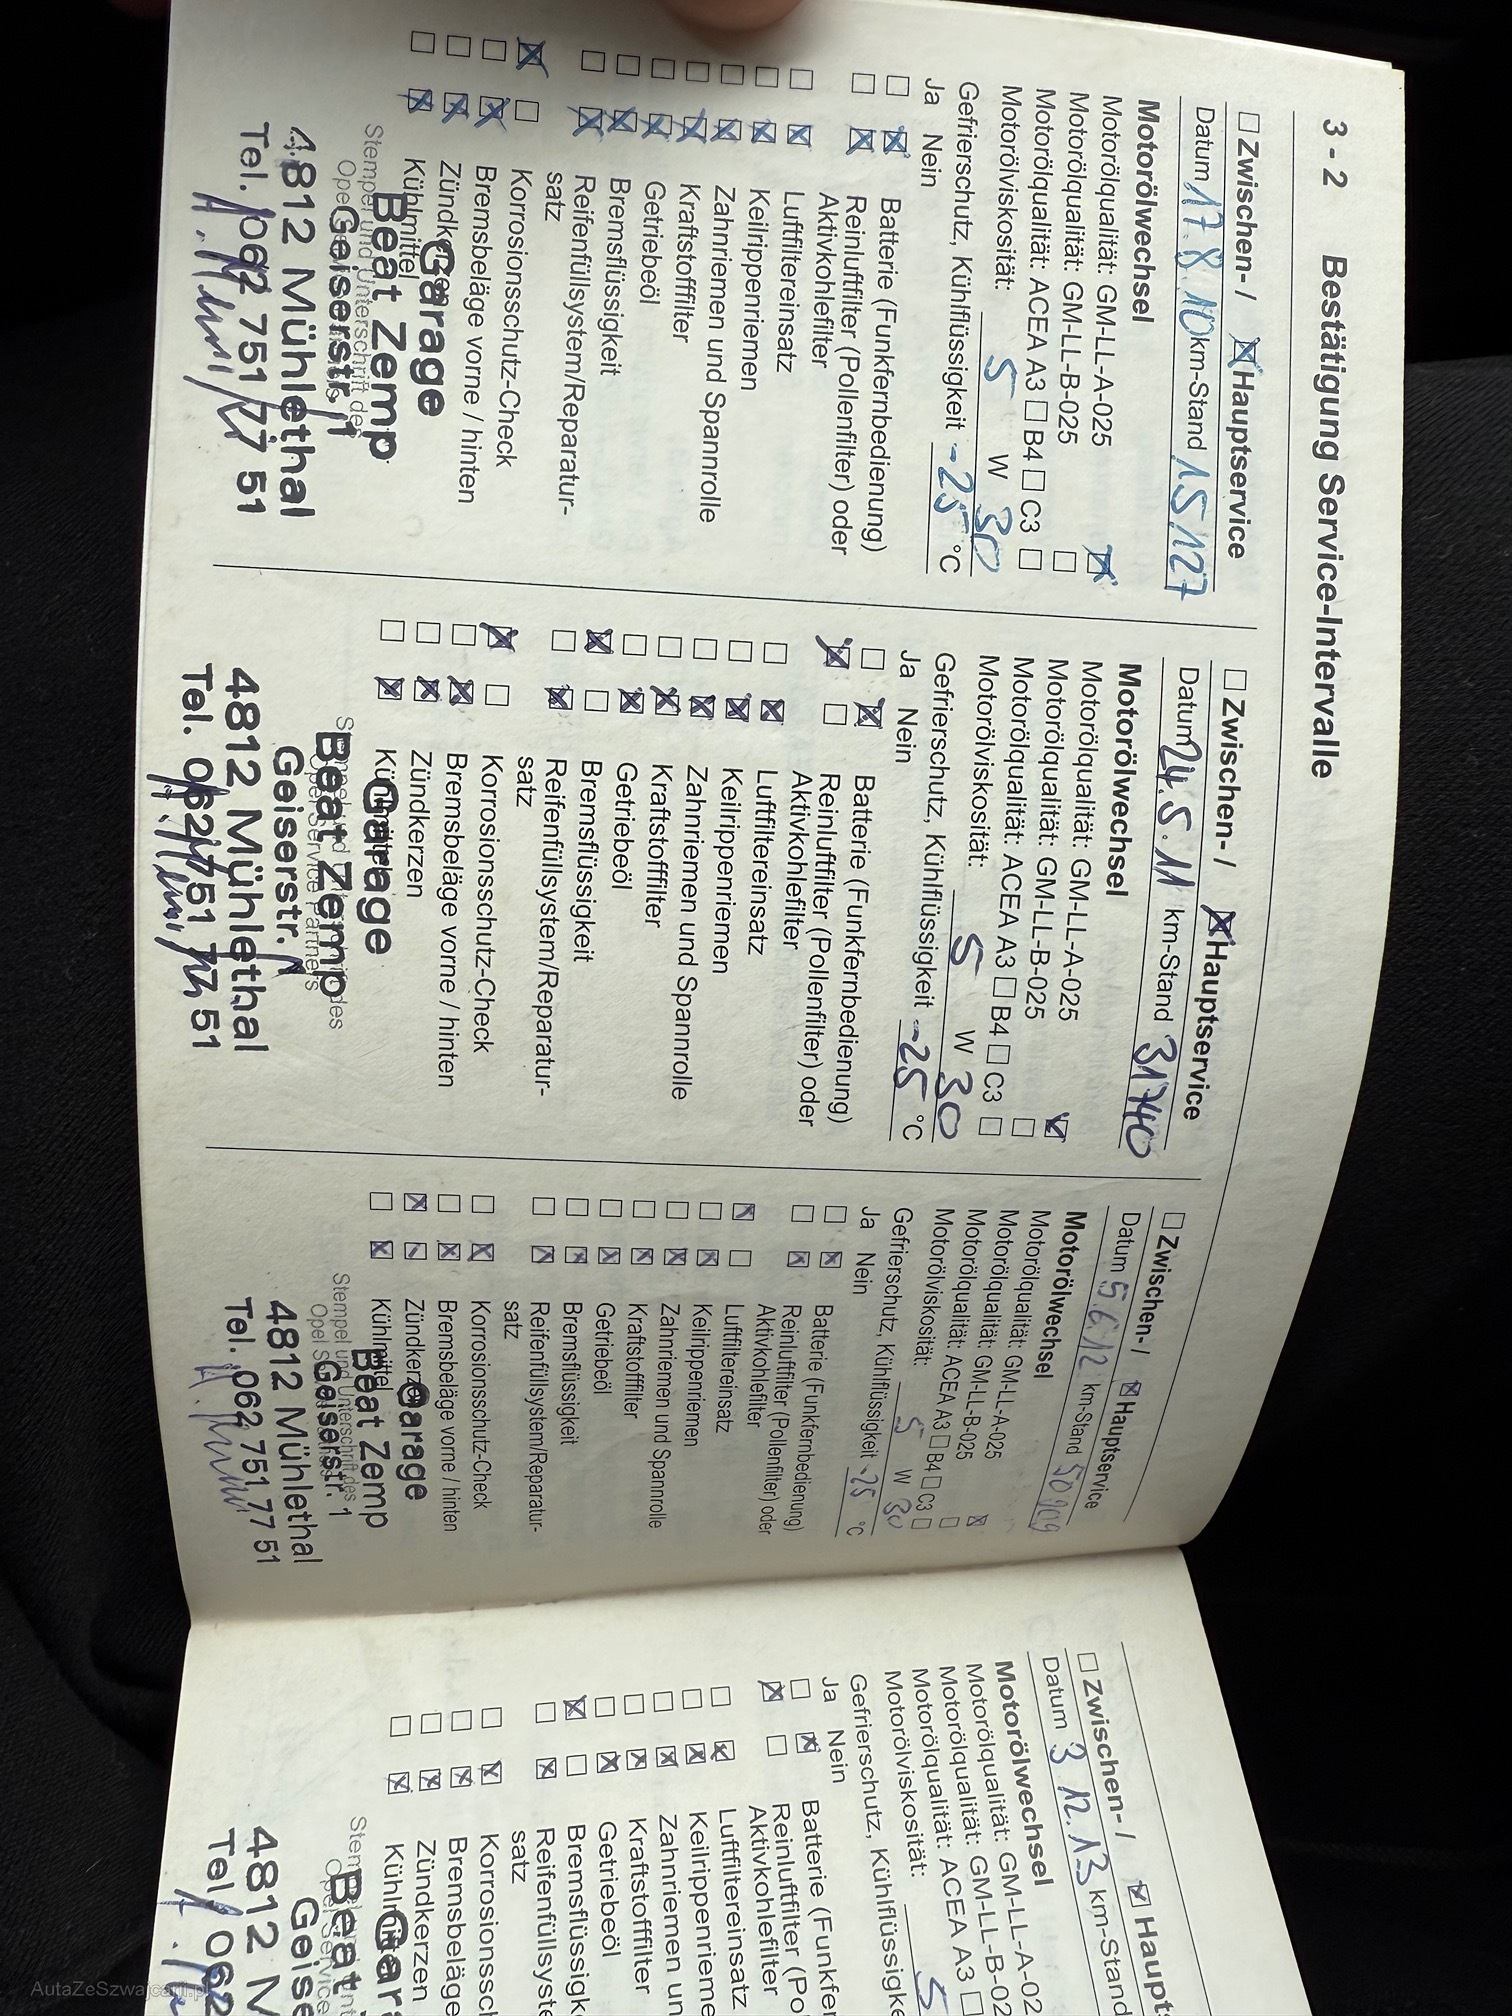 3 - 2 Bestätigung Service-Intervalle
Zwischen- / Hauptservice
Datum 17.8.10 km-Stand 15127
Motorölwechsel
Motorölqualität: GM-LL-A-025
Motorölqualität: GM-LL-B-025
Motorölqualität: ACEA A3 B4 C3
Motorölviskosität: 5 W 30
Gefrierschutz, Kühlflüssigkeit -25 °C
Ja Nein
Batterie (Funkfernbedienung)
Reinluftfilter (Pollenfilter) oder
Aktivkohlefilter
Luftfiltereinsatz
Keilrippenriemen
Zahnriemen und Spannrolle
Kraftstofffilter
Getriebeöl
Bremsflüssigkeit
Reifenfüllsystem/Reparatur-
satz
Korrosionsschutz-Check
Bremsbeläge vorne / hinten
Zündkerzen
Kühlmittel
Stempel und Unterschrift des
Garage
Beat Zemp
Geiserstr. 1
4812 Mühlethal
Tel. 062 751 77 51
Zwischen- / Hauptservice
Datum 24.5.11 km-Stand 31740
Motorölwechsel
Motorölqualität: GM-LL-A-025
Motorölqualität: GM-LL-B-025
Motorölqualität: ACEA A3 B4 C3
Motorölviskosität: 5 W 30
Gefrierschutz, Kühlflüssigkeit -25 °C
Ja Nein
Batterie (Funkfernbedienung)
Reinluftfilter (Pollenfilter) oder
Aktivkohlefilter
Luftfiltereinsatz
Keilrippenriemen
Zahnriemen und Spannrolle
Kraftstofffilter
Getriebeöl
Bremsflüssigkeit
Reifenfüllsystem/Reparatur-
satz
Korrosionsschutz-Check
Bremsbeläge vorne / hinten
Zündkerzen
Kühlmittel
Opel Service Partners
Garage
Beat Zemp
Geiserstr. 1
4812 Mühlethal
Tel. 062 751 77 51
Zwischen- / Hauptservice
Datum 5.6.12 km-Stand 50909
Motorölwechsel
Motorölqualität: GM-LL-A-025
Motorölqualität: GM-LL-B-025
Motorölqualität: ACEA A3 B4 C3
Motorölviskosität: 5 W 30
Gefrierschutz, Kühlflüssigkeit -25 °C
Ja Nein
Batterie (Funkfernbedienung)
Reinluftfilter (Pollenfilter) oder
Aktivkohlefilter
Luftfiltereinsatz
Keilrippenriemen
Zahnriemen und Spannrolle
Kraftstofffilter
Getriebeöl
Bremsflüssigkeit
Reifenfüllsystem/Reparatur-
satz
Korrosionsschutz-Check
Bremsbeläge vorne / hinten
Zündkerzen
Kühlmittel
Stempel und Unterschrift des
Garage
Beat Zemp
Geiserstr. 1
4812 Mühlethal
Tel. 062 751 77 51
Zwischen- / Haupts
Datum 3.12.13 km-Stand
Motorölwechsel
Motorölqualität: GM-LL-A-02
Motorölqualität: GM-LL-B-02
Motorölqualität: ACEA A3
Motorölviskosität: 5
Gefrierschutz, Kühlflüssigke
Ja Nein
Batterie (Funkfer
Reinluftfilter (Po
Aktivkohlefilter
Luftfiltereinsatz
Keilrippenrieme
Zahnriemen un
Kraftstofffilter
Getriebeöl
Bremsflüssigk
Reifenfüllsyste
satz
Korrosionssch
Bremsbeläge
Zündkerzen
Kühlmittel
Gara
Beat
Geise
4812 M
Tel. 062
AutaZeSzwajcarii.pl